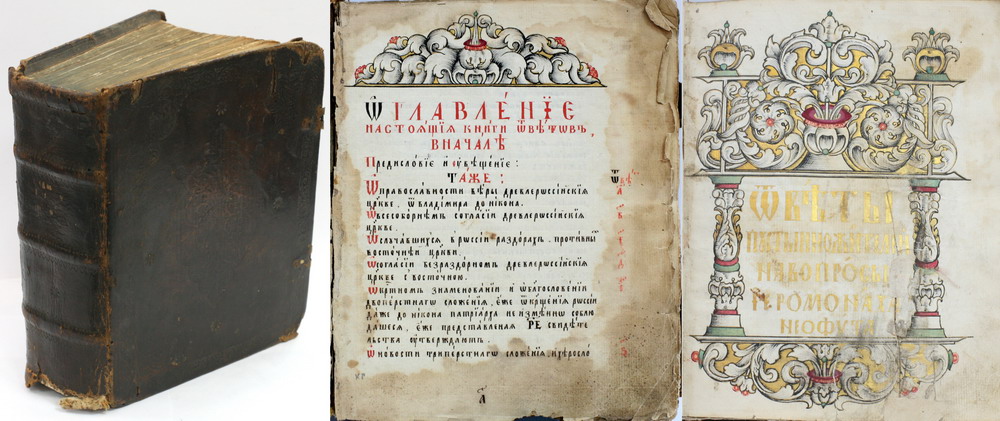 Ѿ ГЛАВЛЕ́НЇЕ
НАСТОѦ́ЩЇѦ КНИ́ГИ Ѿвѣ́тѡвъ,
ВНАЧА́ЛѢ
Предисло́вїе и҆ ᲂу҆вѣще́нїе:
ТА́ЖЕ:
Ѡ҆правосла́вности вѣ́ры древлеросси́йскїѧ
цркве. ѿ влади́мира до ни́кона.
Ѡ҆всесобо́рнемъ согла́сїи древлеросси́йскїѧ
цркве.
Ѡ҆случа́вшихсѧ вросси́и раздо́рахъ. проти́вны
восто́чнѣй цр҃кви.
Ѡ҆согла́сїи безраздо́рномъ древлеросси́йскїѧ
цркве с восто́чною.
Ѡ҆крⷭ҇тномъ знаме́нованїи и҆ ѡ҆благослове́нїи
двопе́рстнагѡ сложе́нїѧ. е҆́же ѿ креще́нїѧ рѡссі́и
да́же до ни́кона патрїа́рха неизмѣ́ннѡ соблю
да́шесѧ, е҆́же предста́вленаѧ РЕ свидѣ́те
льства ᲂу҆твержда́ютъ.
Ѡ҆ но́вости трипе́рстнагѡ сложе́нїѧ
Ѿвѣ́ты
на вопро́сы
Їеромона́ха
Нїофѵ́та